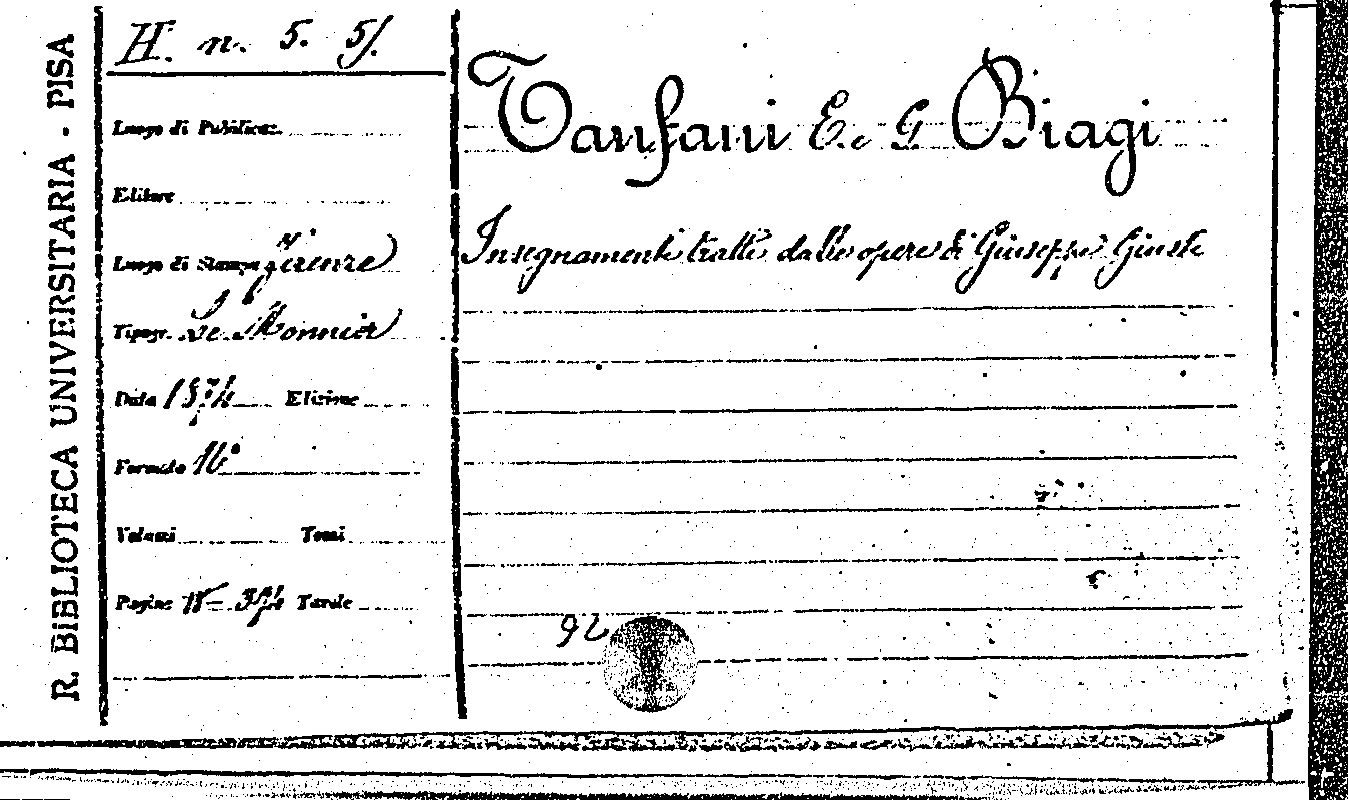 R. BIBLIOTECA UNIVERSITARIA - PISA
H. n. 5. 51.
Luogo di Pubblicaz.
Editore
Luogo di Stampa Firenze
Tipogr. Le Monnier
Data 1874 Edizione
Formato 16°
Volumi Tomi
Pagine Tavole
Tanfani E. G Biagi
Insegnamenti tratti dalle opere di Giuseppe Giusti
92